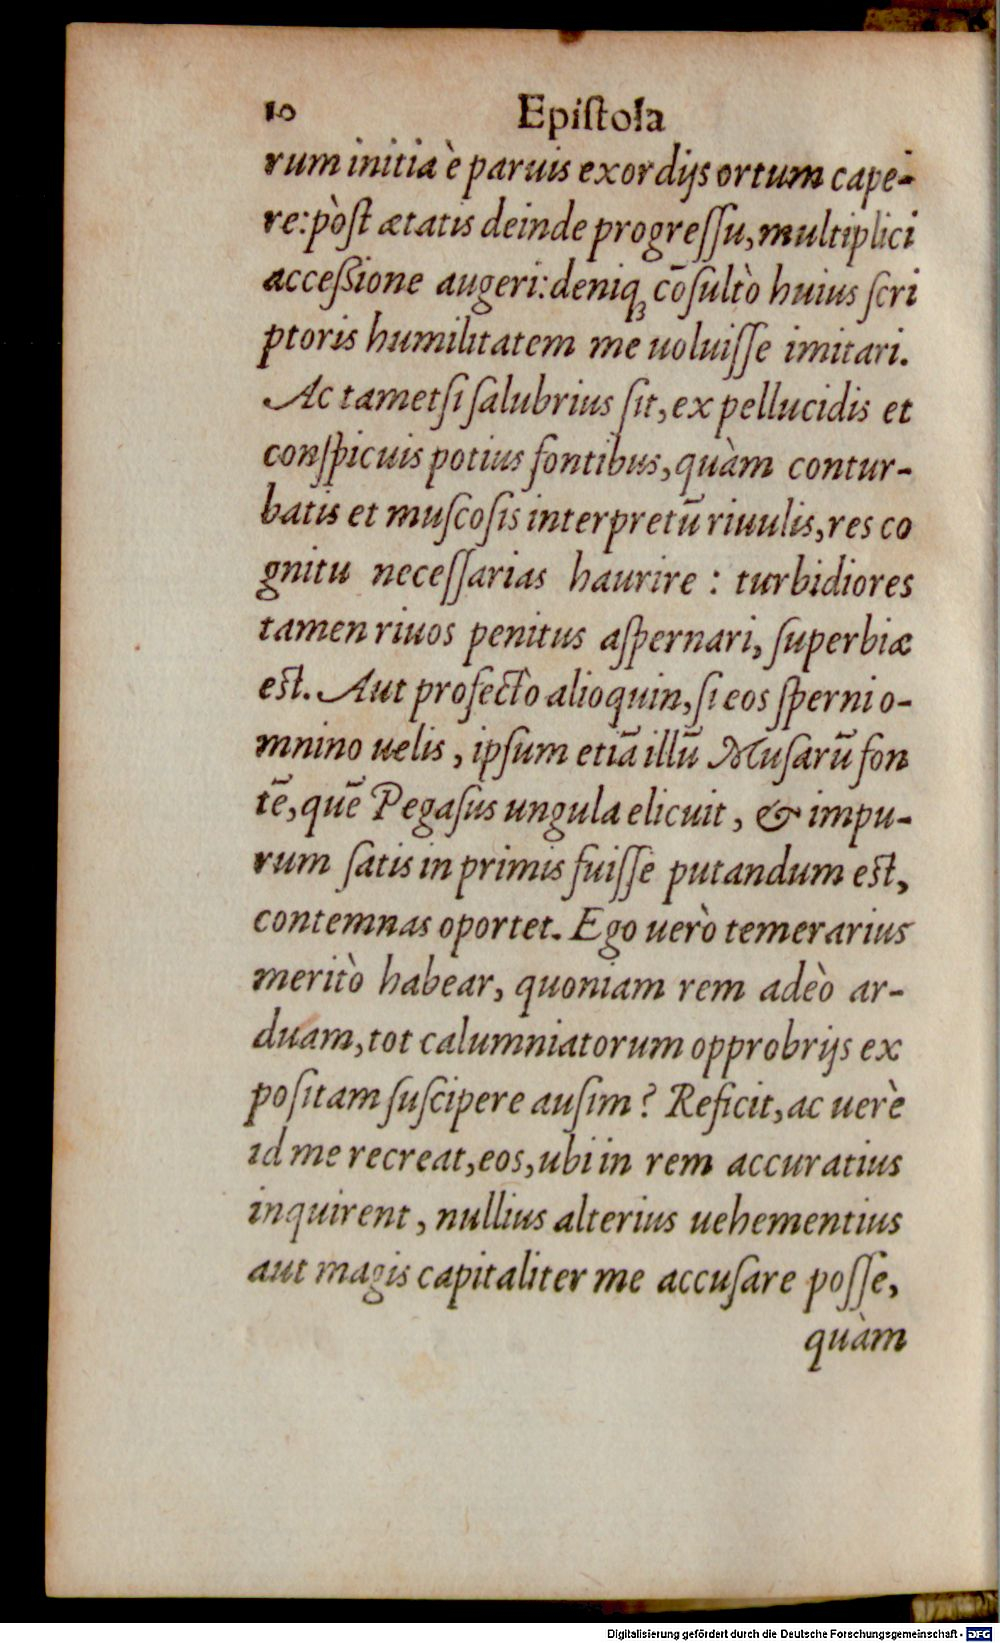 10 Epiſtola
rum initia è paruis exordijs ortum cape-
re: pòſt ætatis deinde progreſſu, multiplici
acceßione augeri: deniqꝫ cōſultò huius ſcri
ptoris humilitatem me uoluiſſe imitari.
Ac tametſi ſalubrius ſit, ex pellucidis et
conſpicuis potius fontibus, quàm contur-
batis et muſcoſis interpretū riuulis, res co
gnitu neceſſarias haurire : turbidiores
tamen riuos penitus aſpernari, ſuperbiæ
eſt. Aut profectò alioquin, ſi eos ſperni o-
mnino uelis, ipſum etiā illū Muſarū fon
tē, quē Pegaſus ungula elicuit, & impu-
rum ſatis in primis fuiſſe putandum eſt,
contemnas oportet. Ego uerò temerarius
meritò habear, quoniam rem adeò ar-
duam, tot calumniatorum opprobrijs ex
poſitam ſuſcipere auſim? Reficit, ac uerè
id me recreat, eos, ubi in rem accuratius
inquirent, nullius alterius uehementius
aut magis capitaliter me accuſare poſſe,
quàm
Digitalisierung gefördert durch die Deutsche Forschungsgemeinschaft - DFG